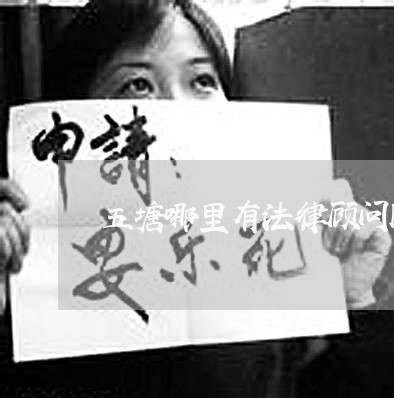 申請：
五塘哪里有法律顾问
要乐